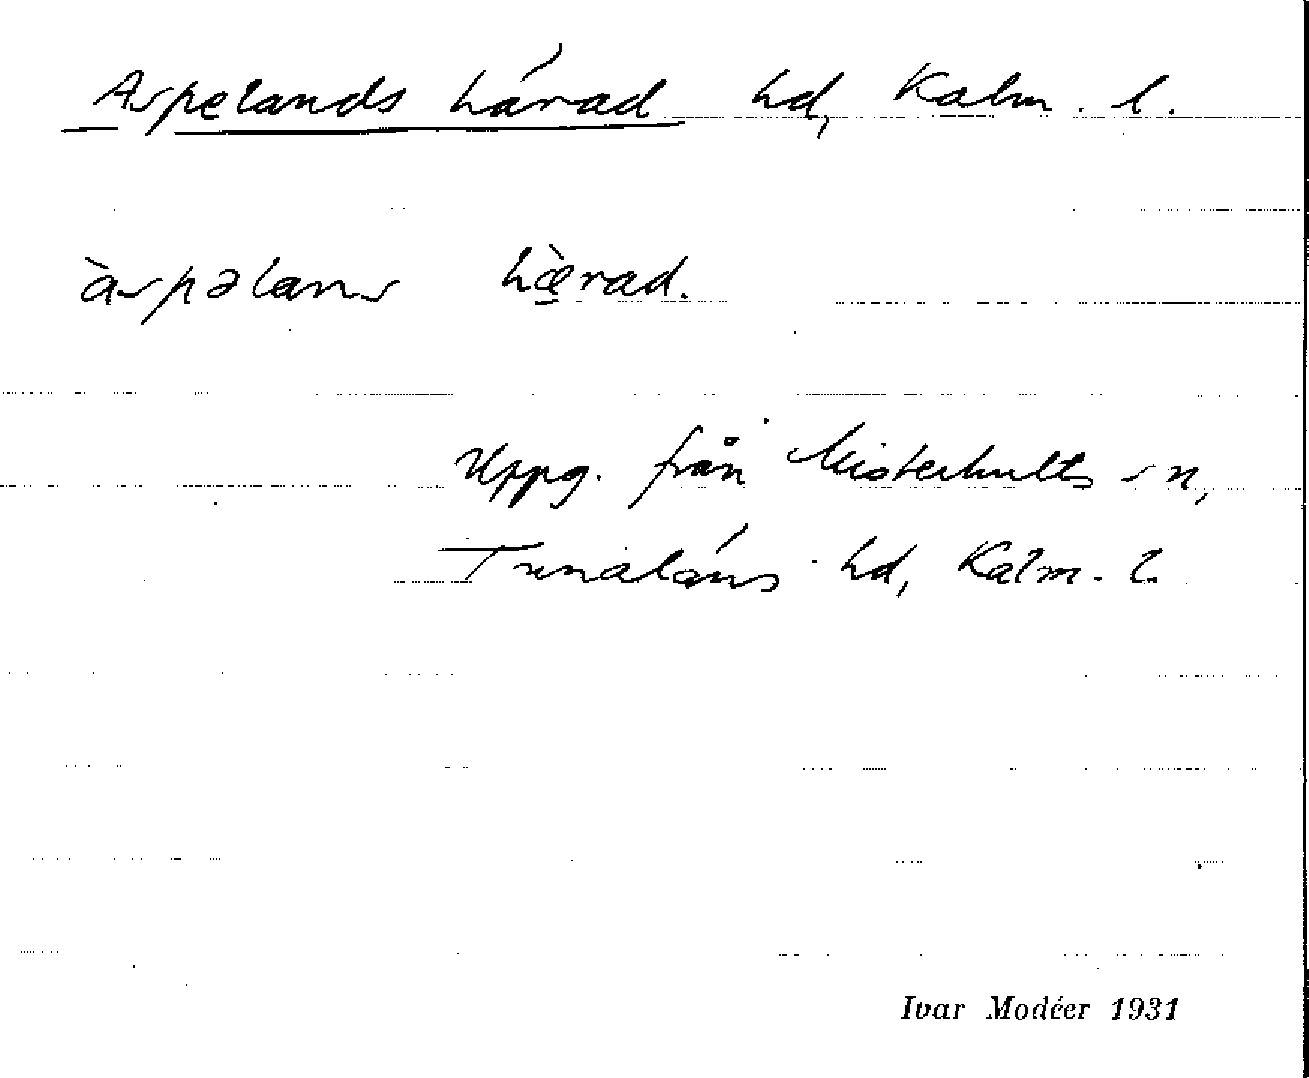 Aspelands härad hd, Kalm. l.
àspəlans hæ̀rad.
Uppg. från Misterhults sn,
Tunaläns hd, Kalm. l.
Ivar Modéer 1931